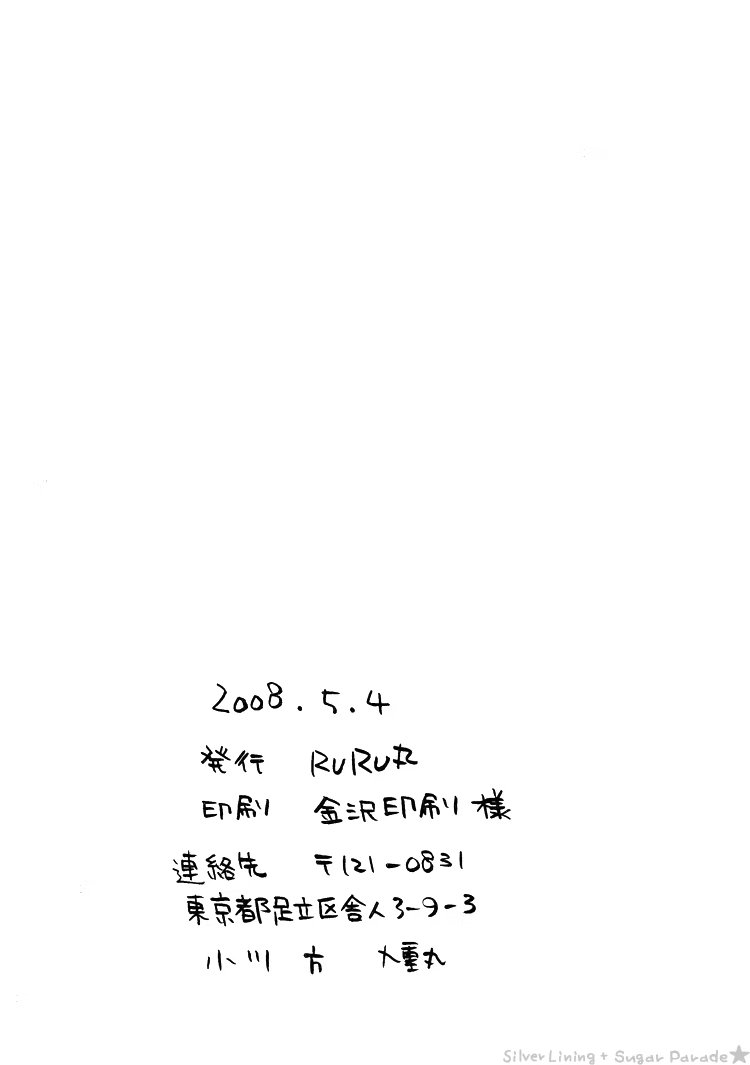 2008.5.4
発行 RURU丸
印刷 金沢印刷様
連絡先 〒121-0831
東京都足立区舎人3-9-3
小川 方 八重丸
Silver Lining + Sugar Parade★